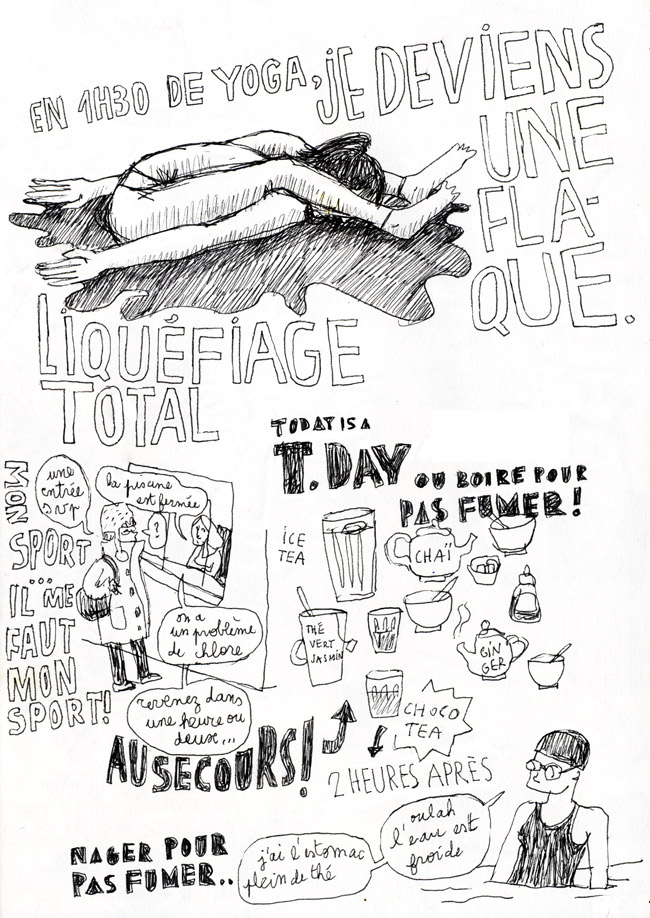 EN 1H30 DE YOGA, JE DEVIENS
UNE
FLA-
QUE.
LIQUÉFIAGE
TOTAL
TODAY IS A
T. DAY OU BOIRE POUR
PAS FUMER!
MON
SPORT
...
IL ME
FAUT
MON
SPORT!
une
entrée
svp
la piscine
est fermée
?
on a
un problème
de chlore
revenez dans
une heure ou
deux...
AU SECOURS!
ICE
TEA
CHAÏ
THÉ
VERT
JASMIN
GIN
GER
CHOCO
TEA
2 HEURES APRÈS
NAGER POUR
PAS FUMER..
j'ai l'estomac
plein de thé
oulah
l'eau est
froide